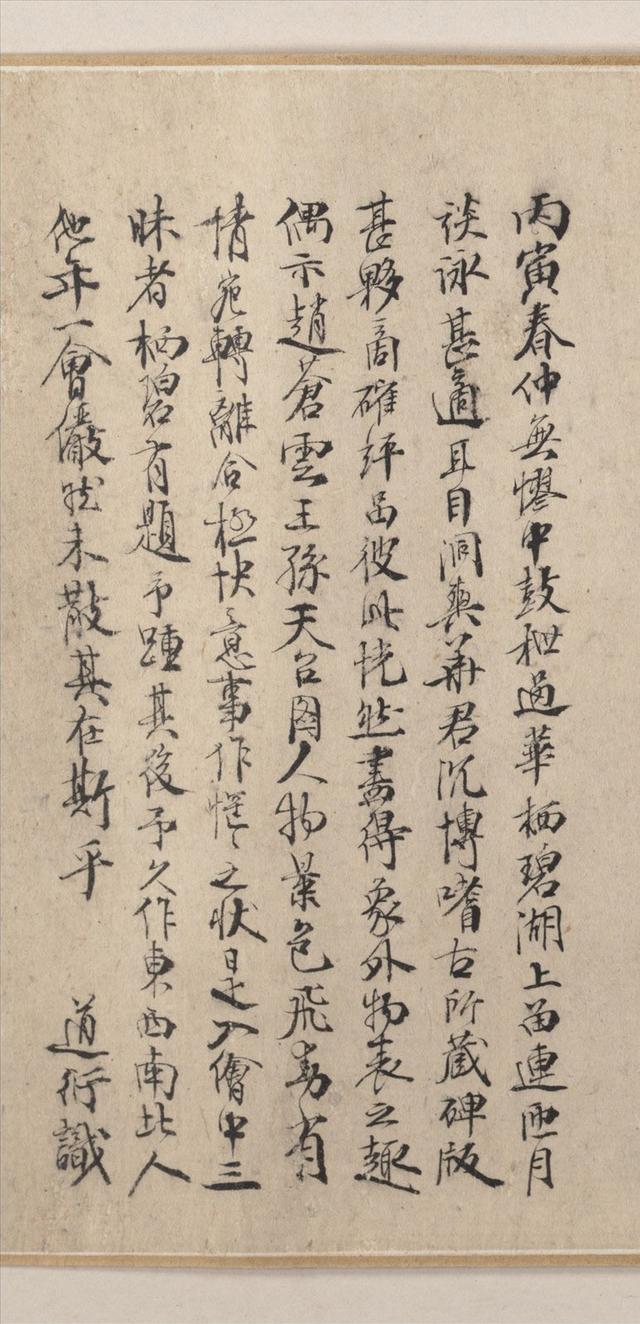 丙寅春仲無憀中鼓枻過華栖碧湖上留連匝月
談詠甚適耳目洞爽華君沉博嗜古所蔵碑版
甚夥商確評品彼此恍然畫得象外物表之趣
偶示趙蒼雲王孫天台圖人物景色飛動有
情宛轉離合極快意事作惺〻之状是入繪中三
昧者栖碧有題予踵其後予久作東西南北人
他年一會儼然未散其在斯乎
道衍識